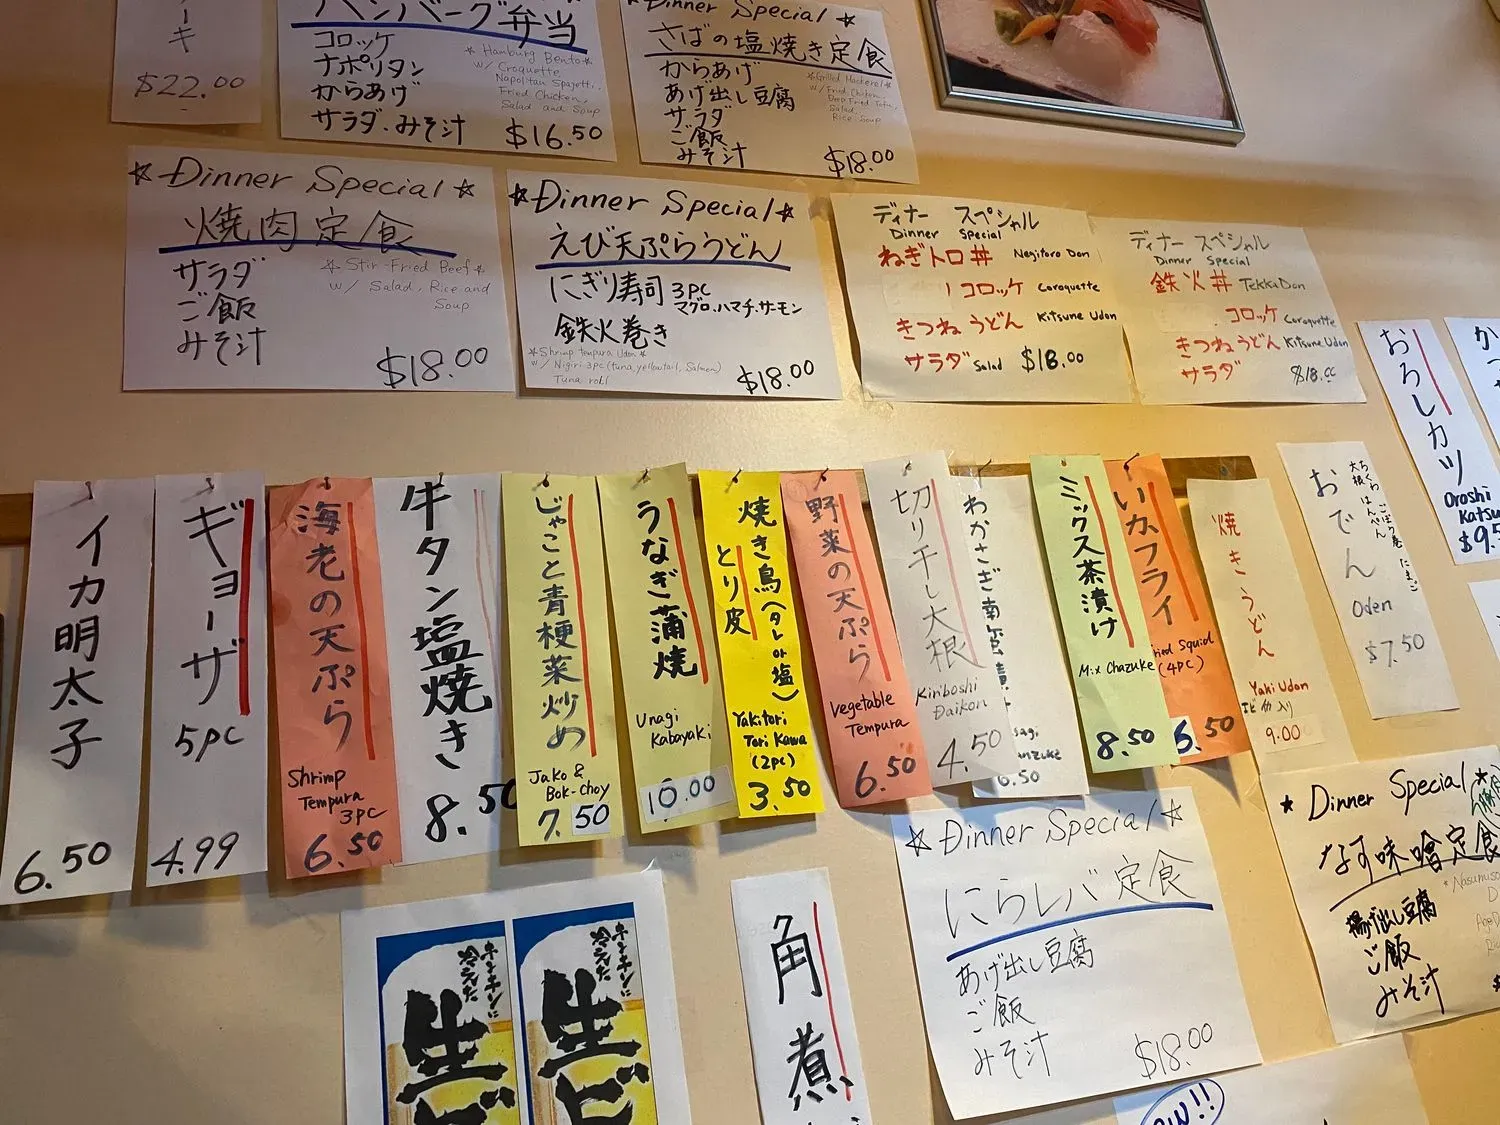 キ
$22.00
ハンバーグ弁当
コロッケ
ナポリタン
からあげ
サラダ・みそ汁
☆ Hamburg Bento ☆
w/ Croquette,
Napolitan Spagetti,
Fried Chicken,
Salad and Soup
$16.50
Dinner Special ☆
さばの塩焼き定食
からあげ
あげ出し豆腐
サラダ
ご飯
みそ汁
☆Grilled Mackerel☆
w/ Fried Chicken,
Deep Fried Tofu,
Salad,
Rice Soup
$18.00
☆ Dinner Special ☆
焼肉定食
サラダ
ご飯
みそ汁
☆ Stir-Fried Beef ☆
w/ Salad, Rice and
Soup
$18.00
☆ Dinner Special ☆
えび天ぷらうどん
にぎり寿司 3PC
マグロ.ハマチ.サーモン
鉄火巻き
☆Shrimp tempura Udon ☆
w/ Nigiri 3pc (tuna, yellowtail, Salmon)
Tuna roll
$18.00
ディナー スペシャル
Dinner Special
ねぎトロ丼 Negitoro Don
コロッケ Coroquette
きつねうどん Kitsune Udon
サラダ Salad $18.00
ディナー スペシャル
Dinner Special
鉄火丼 Tekka Don
コロッケ Coroquette
きつねうどん Kitsune Udon
サラダ $18.00
おろしカツ
Oroshi
Katsu
$9.5
か
イカ明太子
6.50
ギョーザ
5pc
4.99
海老の天ぷら
Shrimp
Tempura
3pc
6.50
牛タン塩焼き
8.50
じゃこと青梗菜炒め
Jako &
Bok-Choy
7.50
うなぎ蒲焼
Unagi
Kabayaki
10.00
焼き鳥(タレor塩)
とり皮
Yakitori
Tori Kawa
(2pc)
3.50
野菜の天ぷら
Vegetable
Tempura
6.50
切り干し大根
Kiriboshi
Daikon
4.50
わかさぎ南蛮漬
6.50
ミックス茶漬け
Mix Chazuke
8.50
いかフライ
Fried Squid
(4pc)
6.50
焼きうどん
Yaki Udon
エビ入り
9.00
おでん
ちくわ ごぼう巻 たまご
大根 はんぺん
Oden
$7.50
キンキンに
冷えた
生ビ
キンキンに
冷えた
生ビ
角煮
☆ Dinner Special ☆
にらレバ定食
あげ出し豆腐
ご飯
みそ汁
$18.00
★ Dinner Special ★
なす味噌定食
揚げ出し豆腐
ご飯
みそ汁